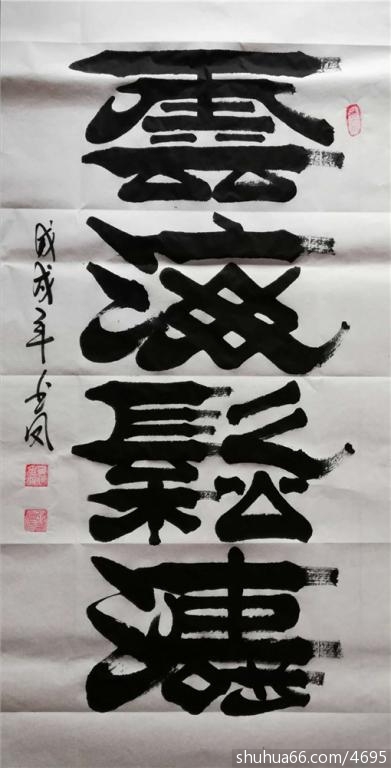 雲海鬆濤
戊戌年凤
shuhua66.com/4695